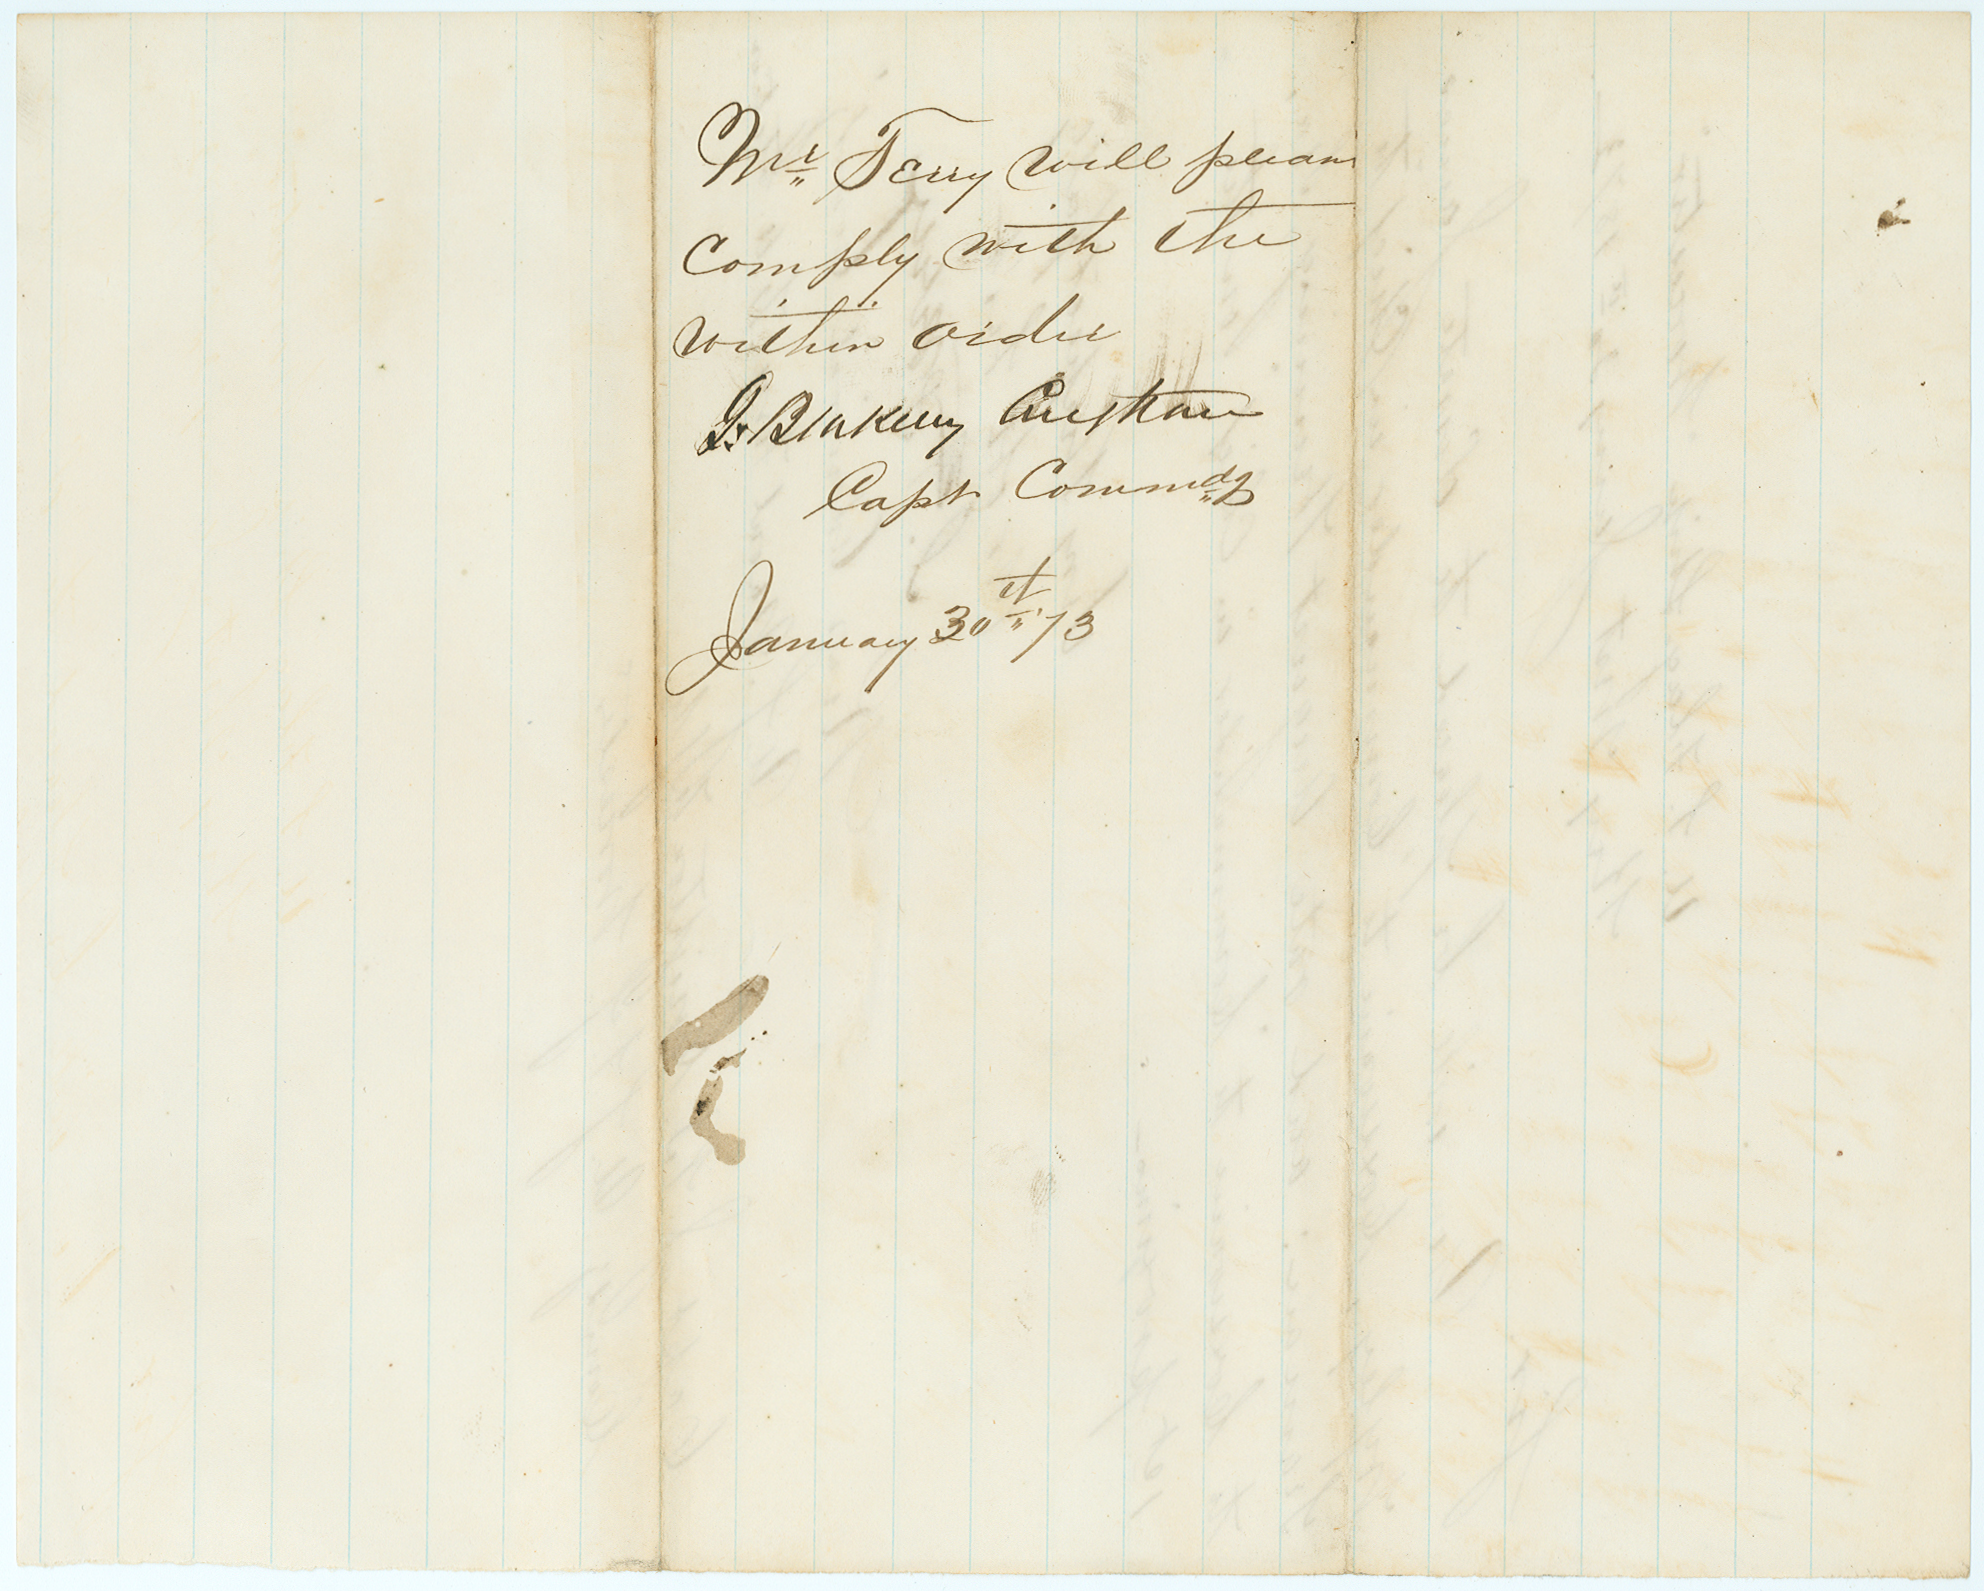 Mr Terry will please
comply with the
within order
G. Blakeny Creghan
Capt Commdg
January 30th 73